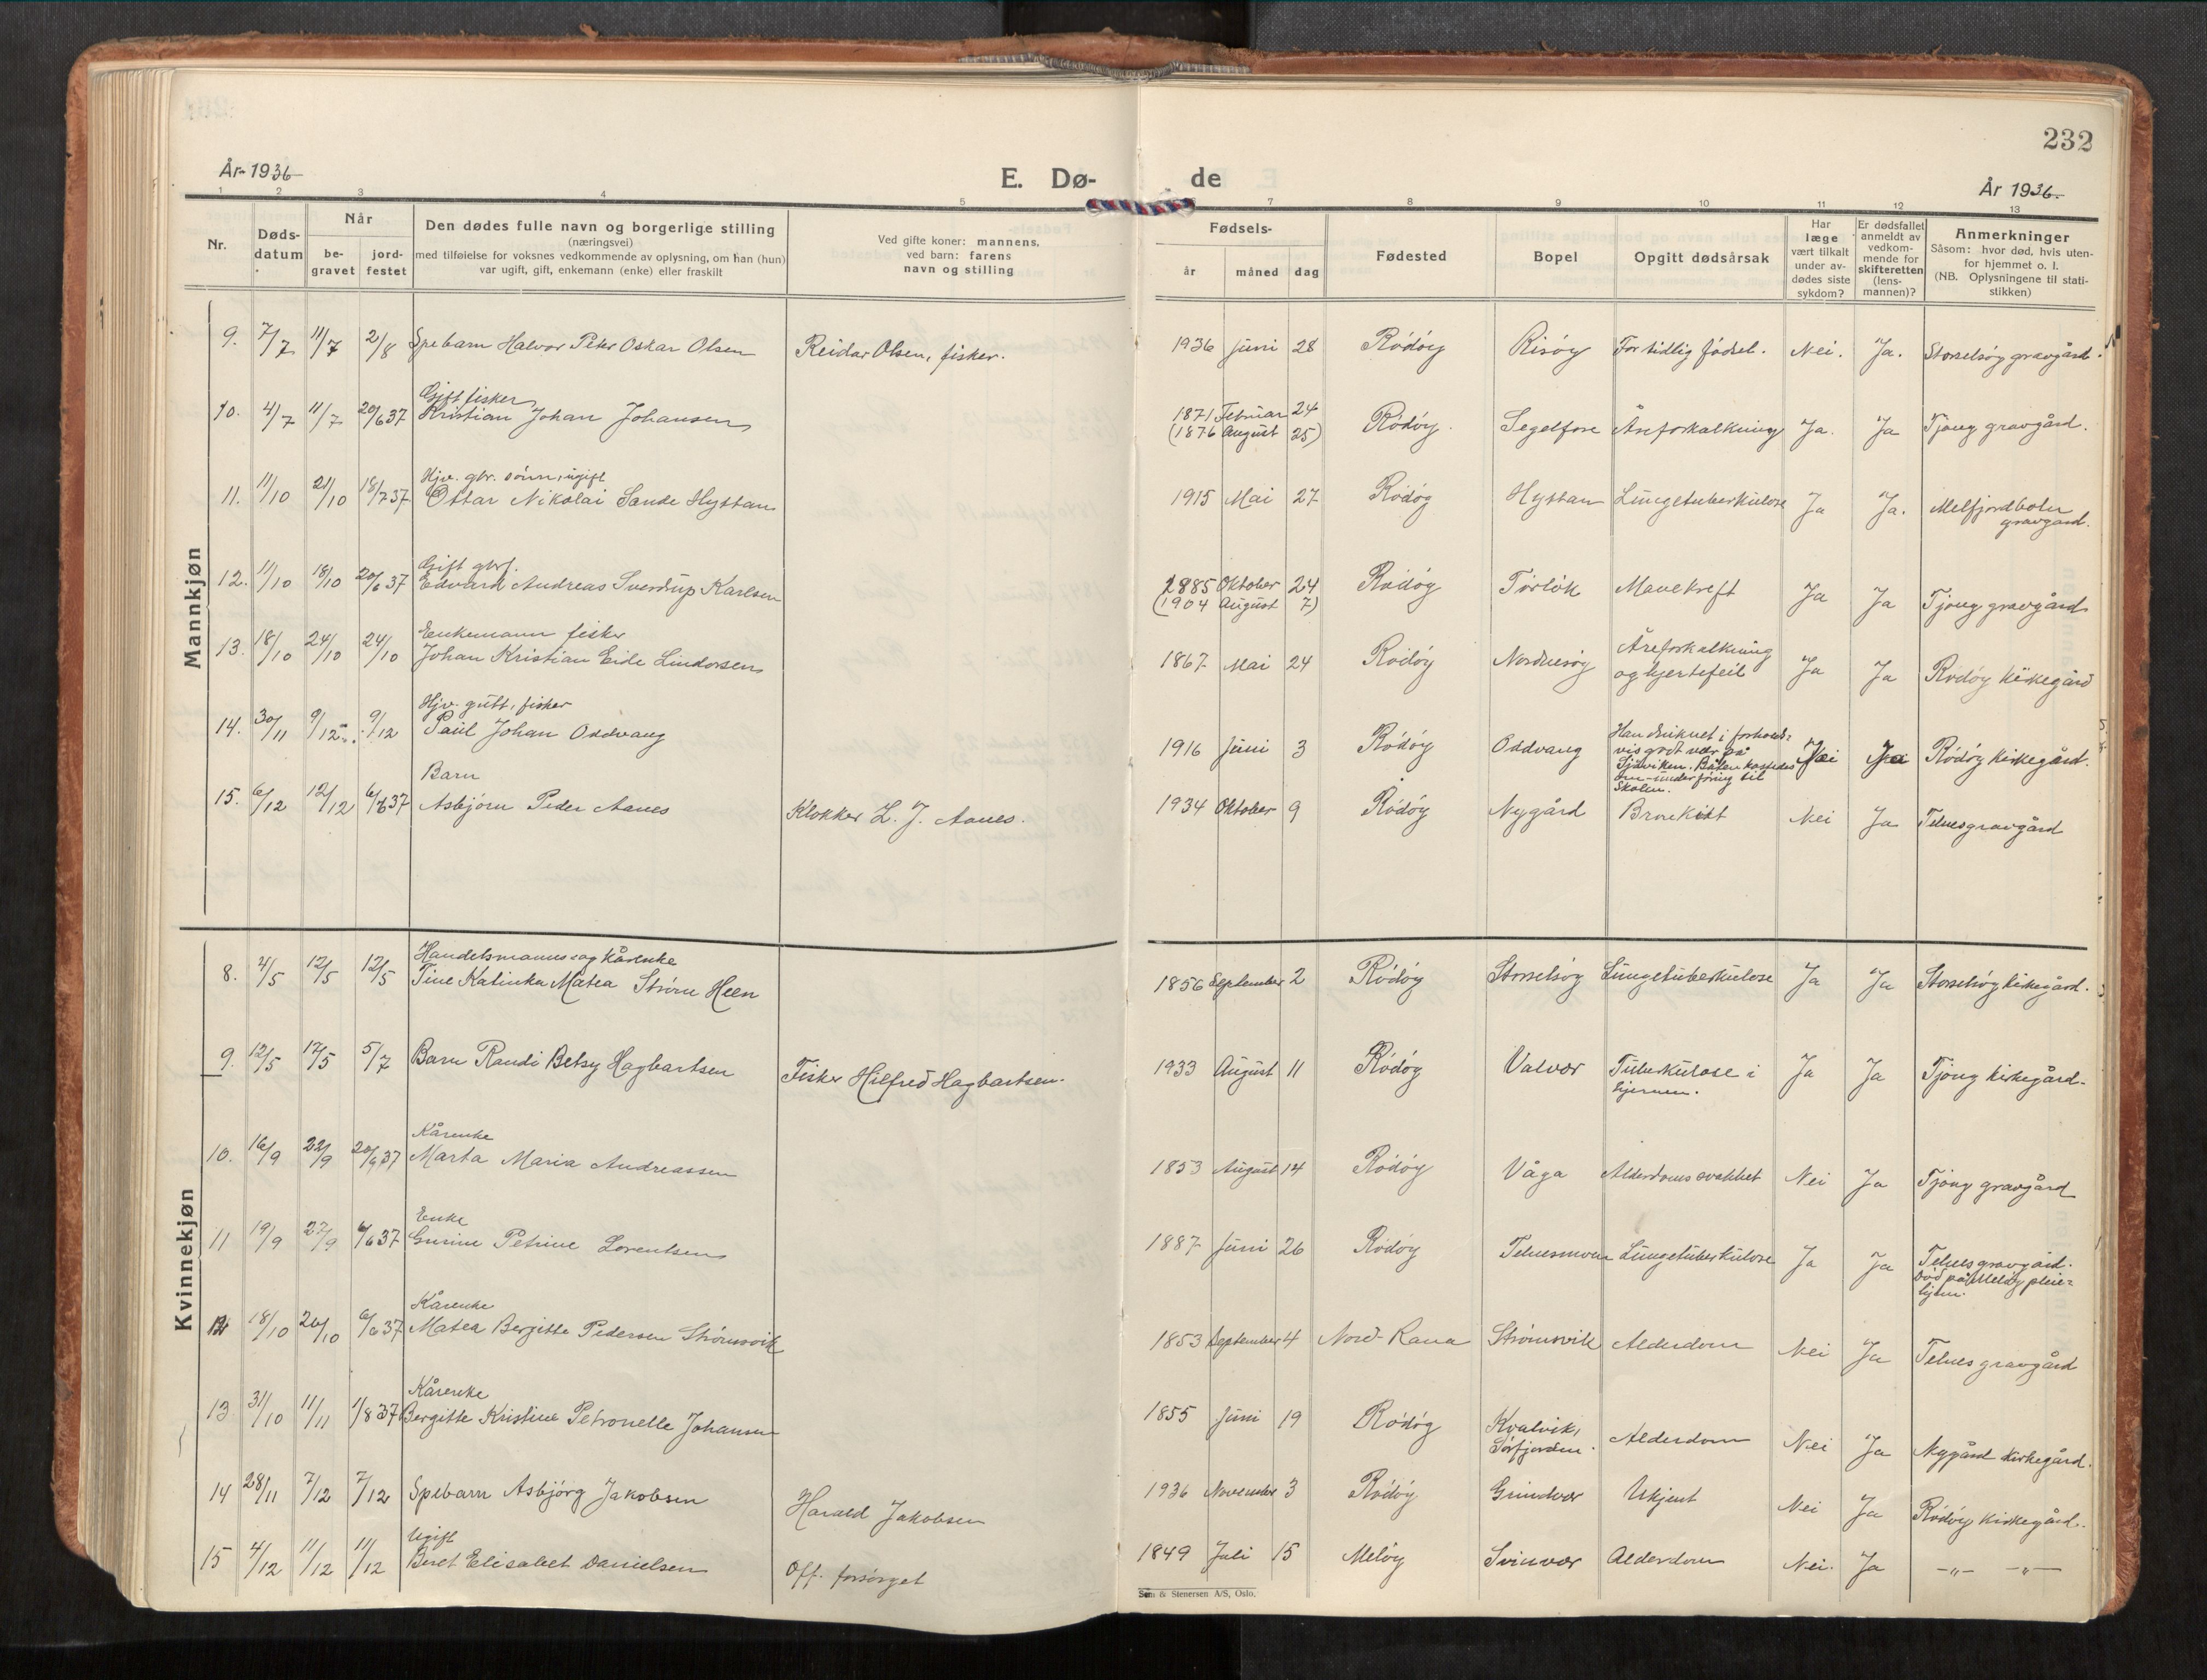 232
År 1936
E. Dø-
de
År 1936.
1 2 3 4 5 6 7 8 9 10 11 12 13
Nr.
Døds-
datum
Når
be-
gravet
jord-
festet
Den dødes fulle navn og borgerlige stilling
(næringsvei)
med tilføielse for voksnes vedkommende av oplysning, om han (hun)
var ugift, gift, enkemann (enke) eller fraskilt
Ved gifte koner: mannens,
ved barn: farens
navn og stilling
Fødsels-
år
måned
dag
Fødested
Bopel
Opgitt dødsårsak
Har
læge
vært tilkalt
under av-
dødes siste
sykdom?
Er dødsfallet
anmeldt av
vedkom-
mende for
skifteretten
(lens-
mannen)?
Anmerkninger
Såsom: hvor død, hvis uten-
for hjemmet o. l.
(NB. Oplysningene til stati-
stikken)
Mannkjøn
9. 7/7 11/7 2/8 Spebarn Halvor Peter Oskar Olsen Reidar Olsen, fisker. 1936 Juni 28 Rödöy Risöy For tidlig födsel. Nei. Ja. Storselsöy gravgård.
Gift fisker
10. 4/7 11/7 20/6 37 Kristian Johan Johansen 1871 Februar 24 Rödöy. Segelfore Åreforkalkning Ja. Ja Tjong gravgård.
(1876 August 25)
Hjv. gbr. sönn, ugift
11. 11/10 21/10 18/7 37 Ottar Nikolai Sande Hystan 1915 Mai 27 Rödöy Hystan Lungetuberkulose Ja Ja. Melfjordboten
gravgård.
Gift gbr.
12. 11/10 18/10 20/6 37 Edvard Andreas Sverdrup Karlsen 1885 Oktober 24 Rödöy Torlök Mavekreft Ja Ja Tjong gravgård
(1904 August 7)
Enkemann fisker
13. 18/10 24/10 24/10 Johan Kristian Eide Lindorsen 1867 Mai 24 Rödöy Nordnesöy Åreforkalkning
og hjertefeil Ja Ja Rödöy kirkegård
Hjv. gutt, fisker
14. 30/11 9/12 9/12 Paul Johan Oddvang 1916 Juni 3 Rödöy Oddvang Han druknet i forholds-
vis godt vær på
Sjövi­ken. Båten kastedes
om under föring til
Skolen. Nei Ja Rödöy kirkegård.
Barn
15. 6/12 12/12 6/6 37 Asbjörn Peder Aanes Klokker L. J. Aanes. 1934 Oktober 9 Rödöy Nygård Bronkitt Nei Ja Telnes gravgård
Kvinnekjøn
Handelsmanns og kårenke
8. 4/5 12/5 12/5 Tine Katinka Matea Ström Heen 1856 September 2 Rödöy Storselsöy Lungetuberkulose Ja Ja Storselsöy kirkegård.
9. 12/5 17/5 5/7 Barn Randi Betsy Hagbartsen Fisker Hilfred Hagbartsen. 1933 August 11 Rödöy Valvær Tuberkulose i
hjernen. Ja Ja Tjong kirkegård.
Kårenke
10. 16/9 22/9 20/6 37 Marta Maria Andreassen 1853 August 14 Rödöy Våga Alderdomssvakhet Nei Ja Tjong gravgård
Enke
11 19/9 27/9 6/6 37 Gurine Petrine Lorentsen 1887 Juni 26 Rödöy Telnesmoen Lungetuberkulose Ja Ja Telnes gravgård.
Död på Melöy pleie-
hjem.
Kårenke
12 18/10 26/10 6/6 37 Matea Bergitte Pedersen Strömsvik 1853 September 4 Nord-Rana Strömsvik Alderdom Nei Ja Telnes gravgård
Kårenke
13 31/10 11/11 1/8 37 Bergitte Kristine Petronelle Johansen 1855 Juni 19 Rödöy Kvalvik,
Sörfjorden. Alderdom Nei Ja Nygård kirkegård.
14 28/11 7/12 7/12 Spebarn Asbjörg Jakobsen Harald Jakobsen 1936 November 3 Rödöy Grindvær Ukjent Nei Ja Rödöy kirkegård.
Ugift
15 4/12 11/12 11/12 Beret Elisabet Danielsen Off. forsörget 1849 Juli 15 Melöy Svinvær Alderdom Nei. Ja -"- -"-
Sem & Stenersen A/S, Oslo.